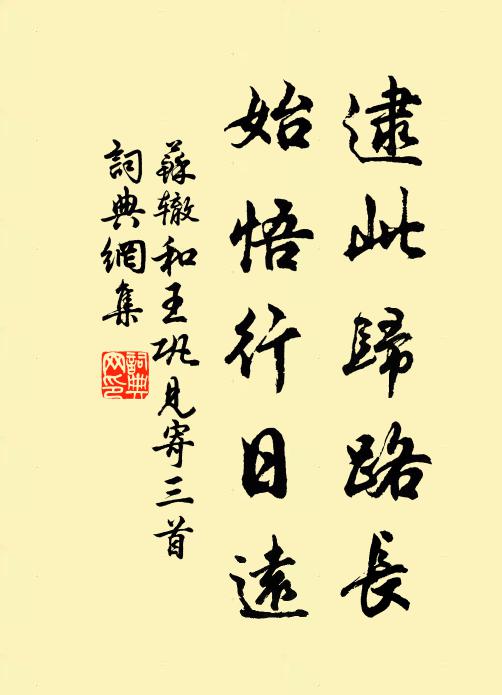 逮此歸路長
始悟行日遠
蘇辙和王巩見寄三首
詞典網集
詞典
网印